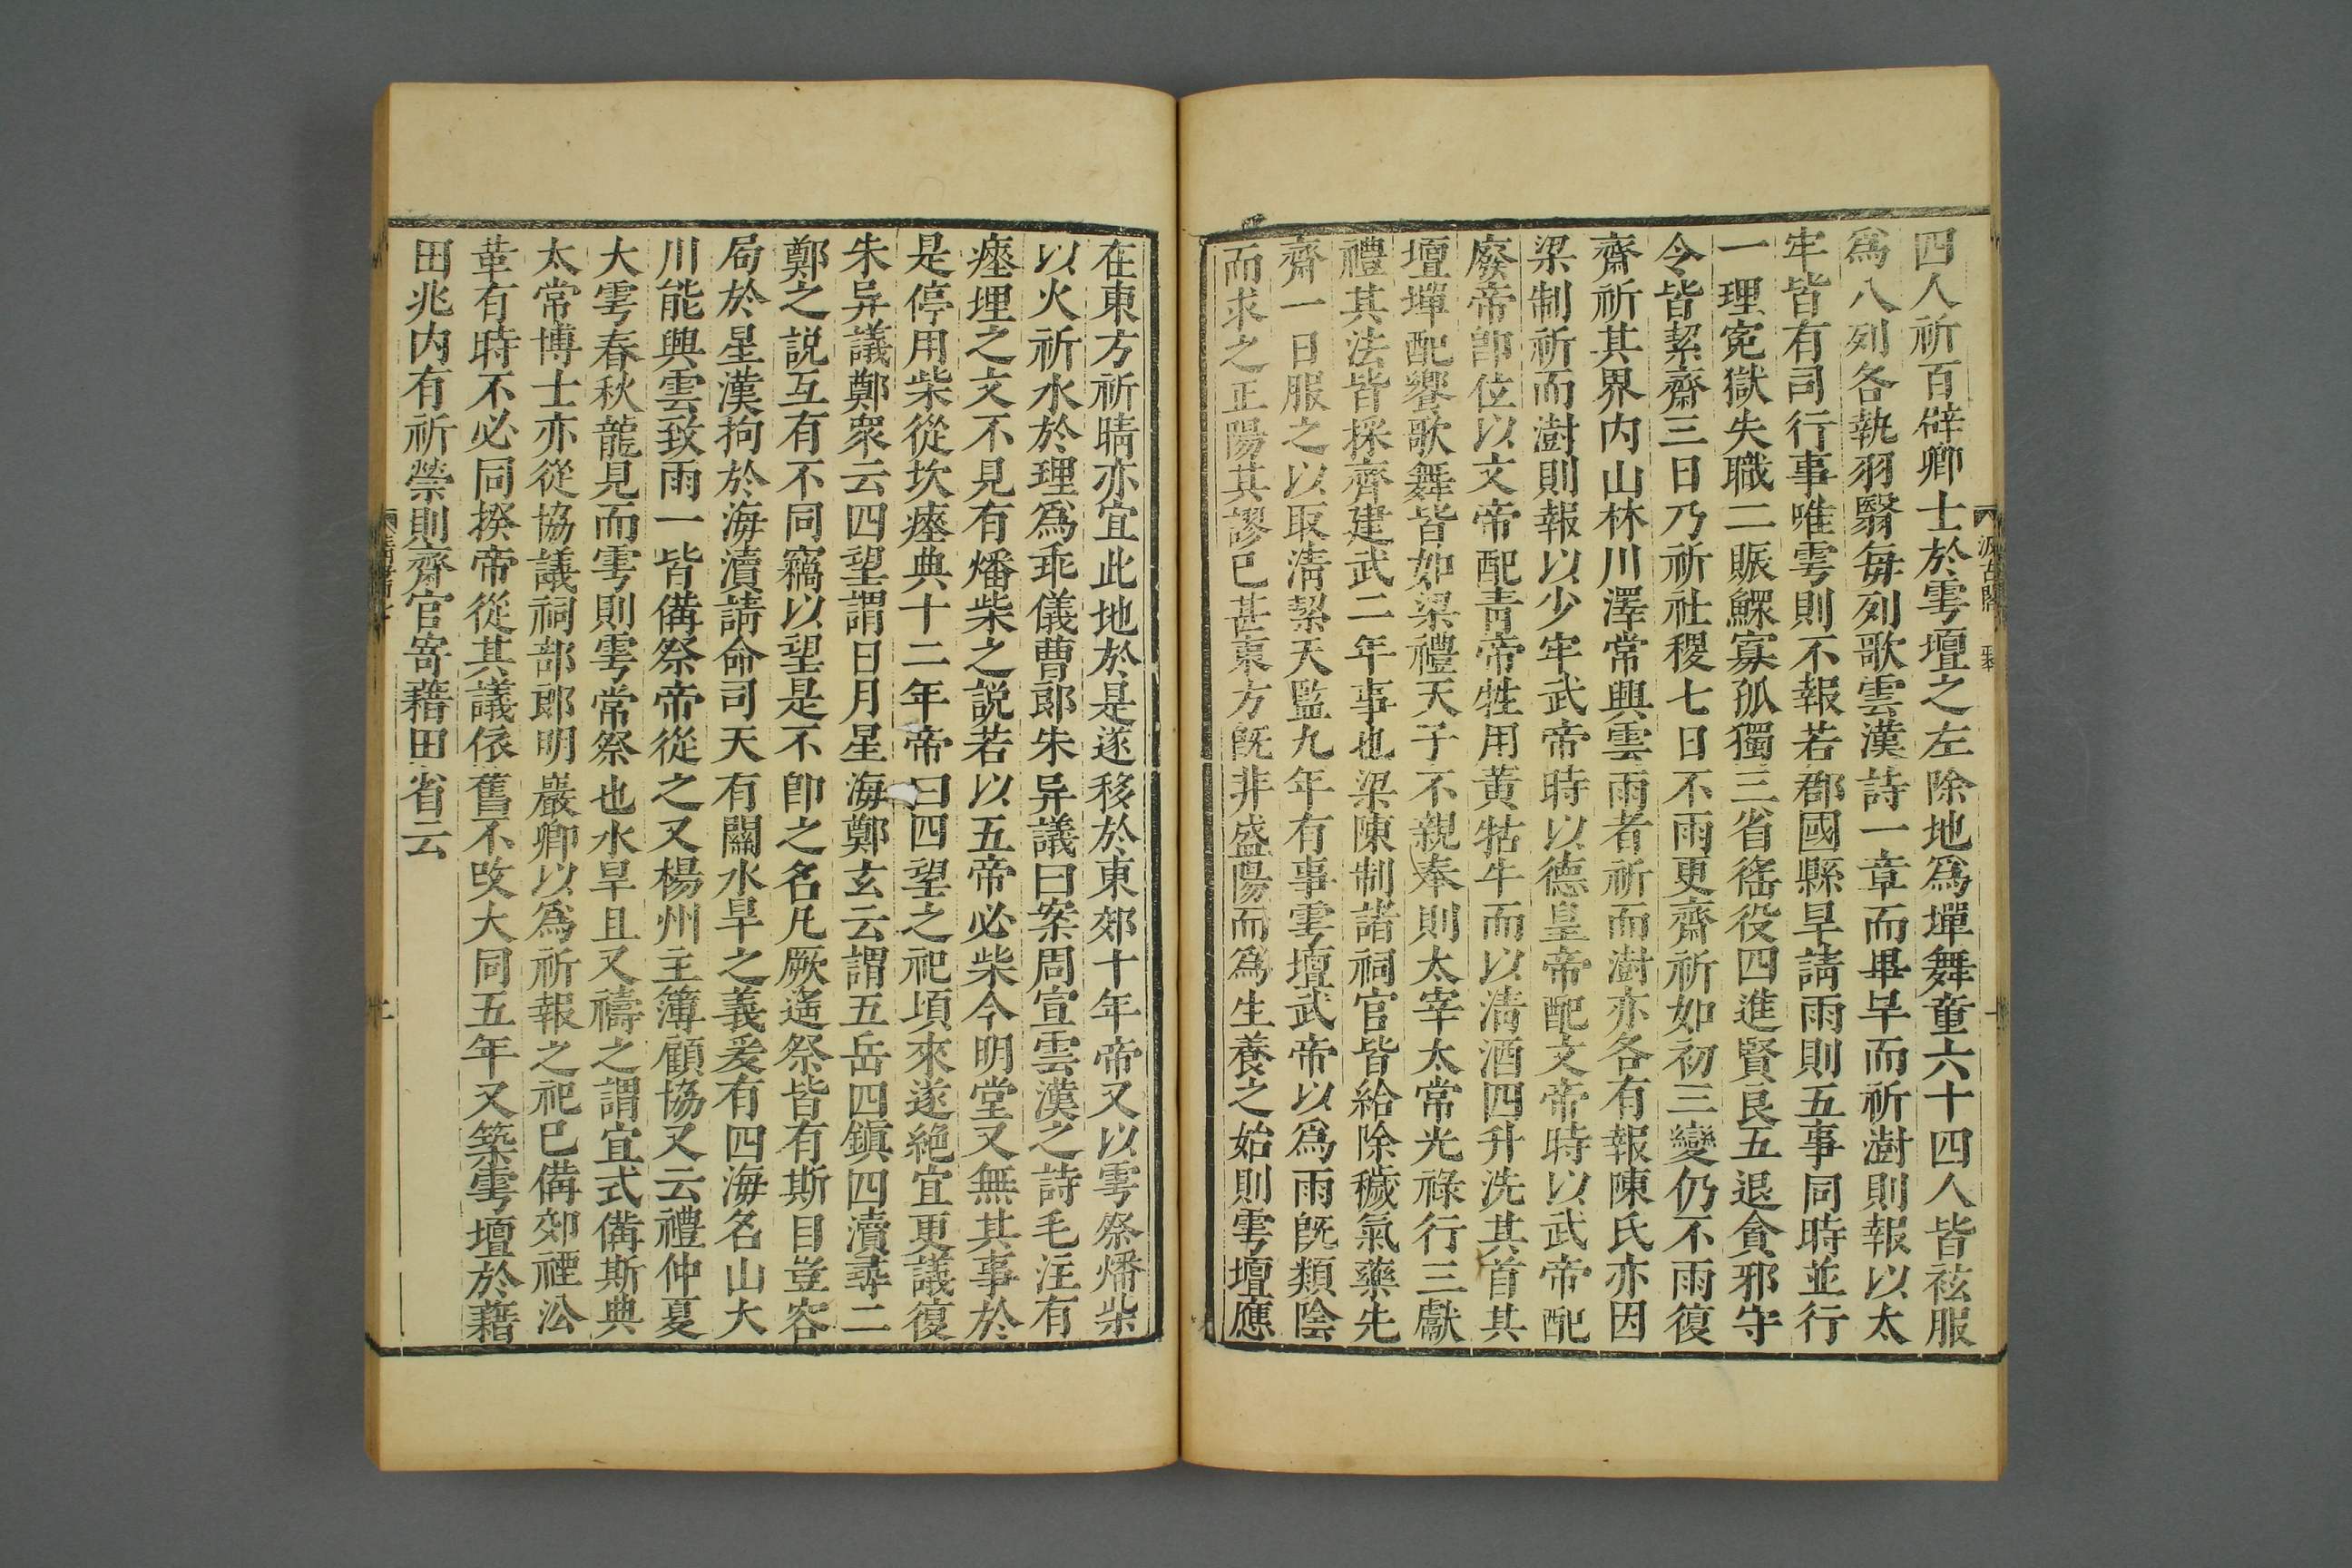 四人祈百辟卿士於雩壇之左除地爲墠舞童六十四人皆袨服
爲八列各執羽翳每列歌雲漢詩一章而畢旱而祈澍則報以太
牢皆有司行事唯雩則不報若郡國縣旱請雨則五事同時並行
一理寃獄失職二賑鰥寡孤獨三省徭役四進賢良五退貪邪守
令皆絜齋三日乃祈社稷七日不雨更齋祈如初三變仍不雨復
齋祈其界內山林川澤常興雲雨者祈而澍亦各有報陳氏亦因
梁制祈而澍則報以少牢武帝時以德皇帝配文帝時以武帝配
廢帝卽位以文帝配青帝牲用黃牯牛而以清酒四升洗其首其
壇墠配饗歌舞皆如梁禮天子不親奉則太宰太常光祿行三獻
禮其法皆採齊建武二年事也梁陳制諸祠官皆給除穢氣藥先
齋一日服之以取清絜天監九年有事雩壇武帝以爲雨旣類陰
而求之正陽其謬已甚東方旣非盛陽而爲生養之始則雩壇應
在東方祈晴亦宜此地於是遂移於東郊十年帝又以雩祭燔柴
以火祈水於理爲乖儀曹郎朱异議曰案周宣雲漢之詩毛注有
瘞埋之文不見有燔柴之説若以五帝必柴今明堂又無其事於
是停用柴從坎瘞典十二年帝曰四望之祀頃來遂絕宜更議復
朱异議鄭衆云四望謂日月星海鄭玄云謂五岳四鎮四瀆尋二
鄭之説互有不同竊以望是不卽之名凡厥遙祭皆有斯目豈容
局於星漢拘於海瀆請命司天有關水旱之義爰有四海名山大
川能興雲致雨一皆備祭帝從之又楊州主簿顧協又云禮仲夏
大雩春秋龍見而雩則雩常祭也水旱且又禱之謂宜式備斯典
太常博士亦從協議祠部郎明巖卿以爲祈報之祀已備郊禋沿
革有時不必同揆帝從其議依舊不改大同五年又築雩壇於藉
田兆內有祈禜則齋官寄藉田省云
汲古閣